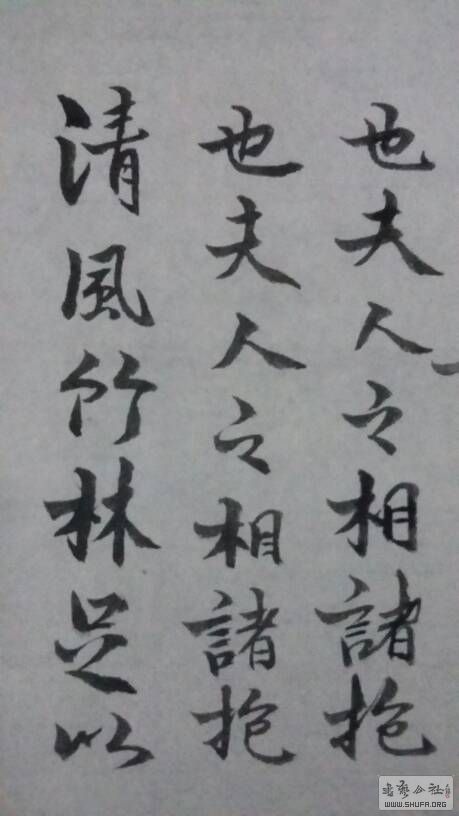 也夫人之相諸抱
也夫人之相諸抱
清風竹林足以
書藝公社
WWW.SHUFA.ORG